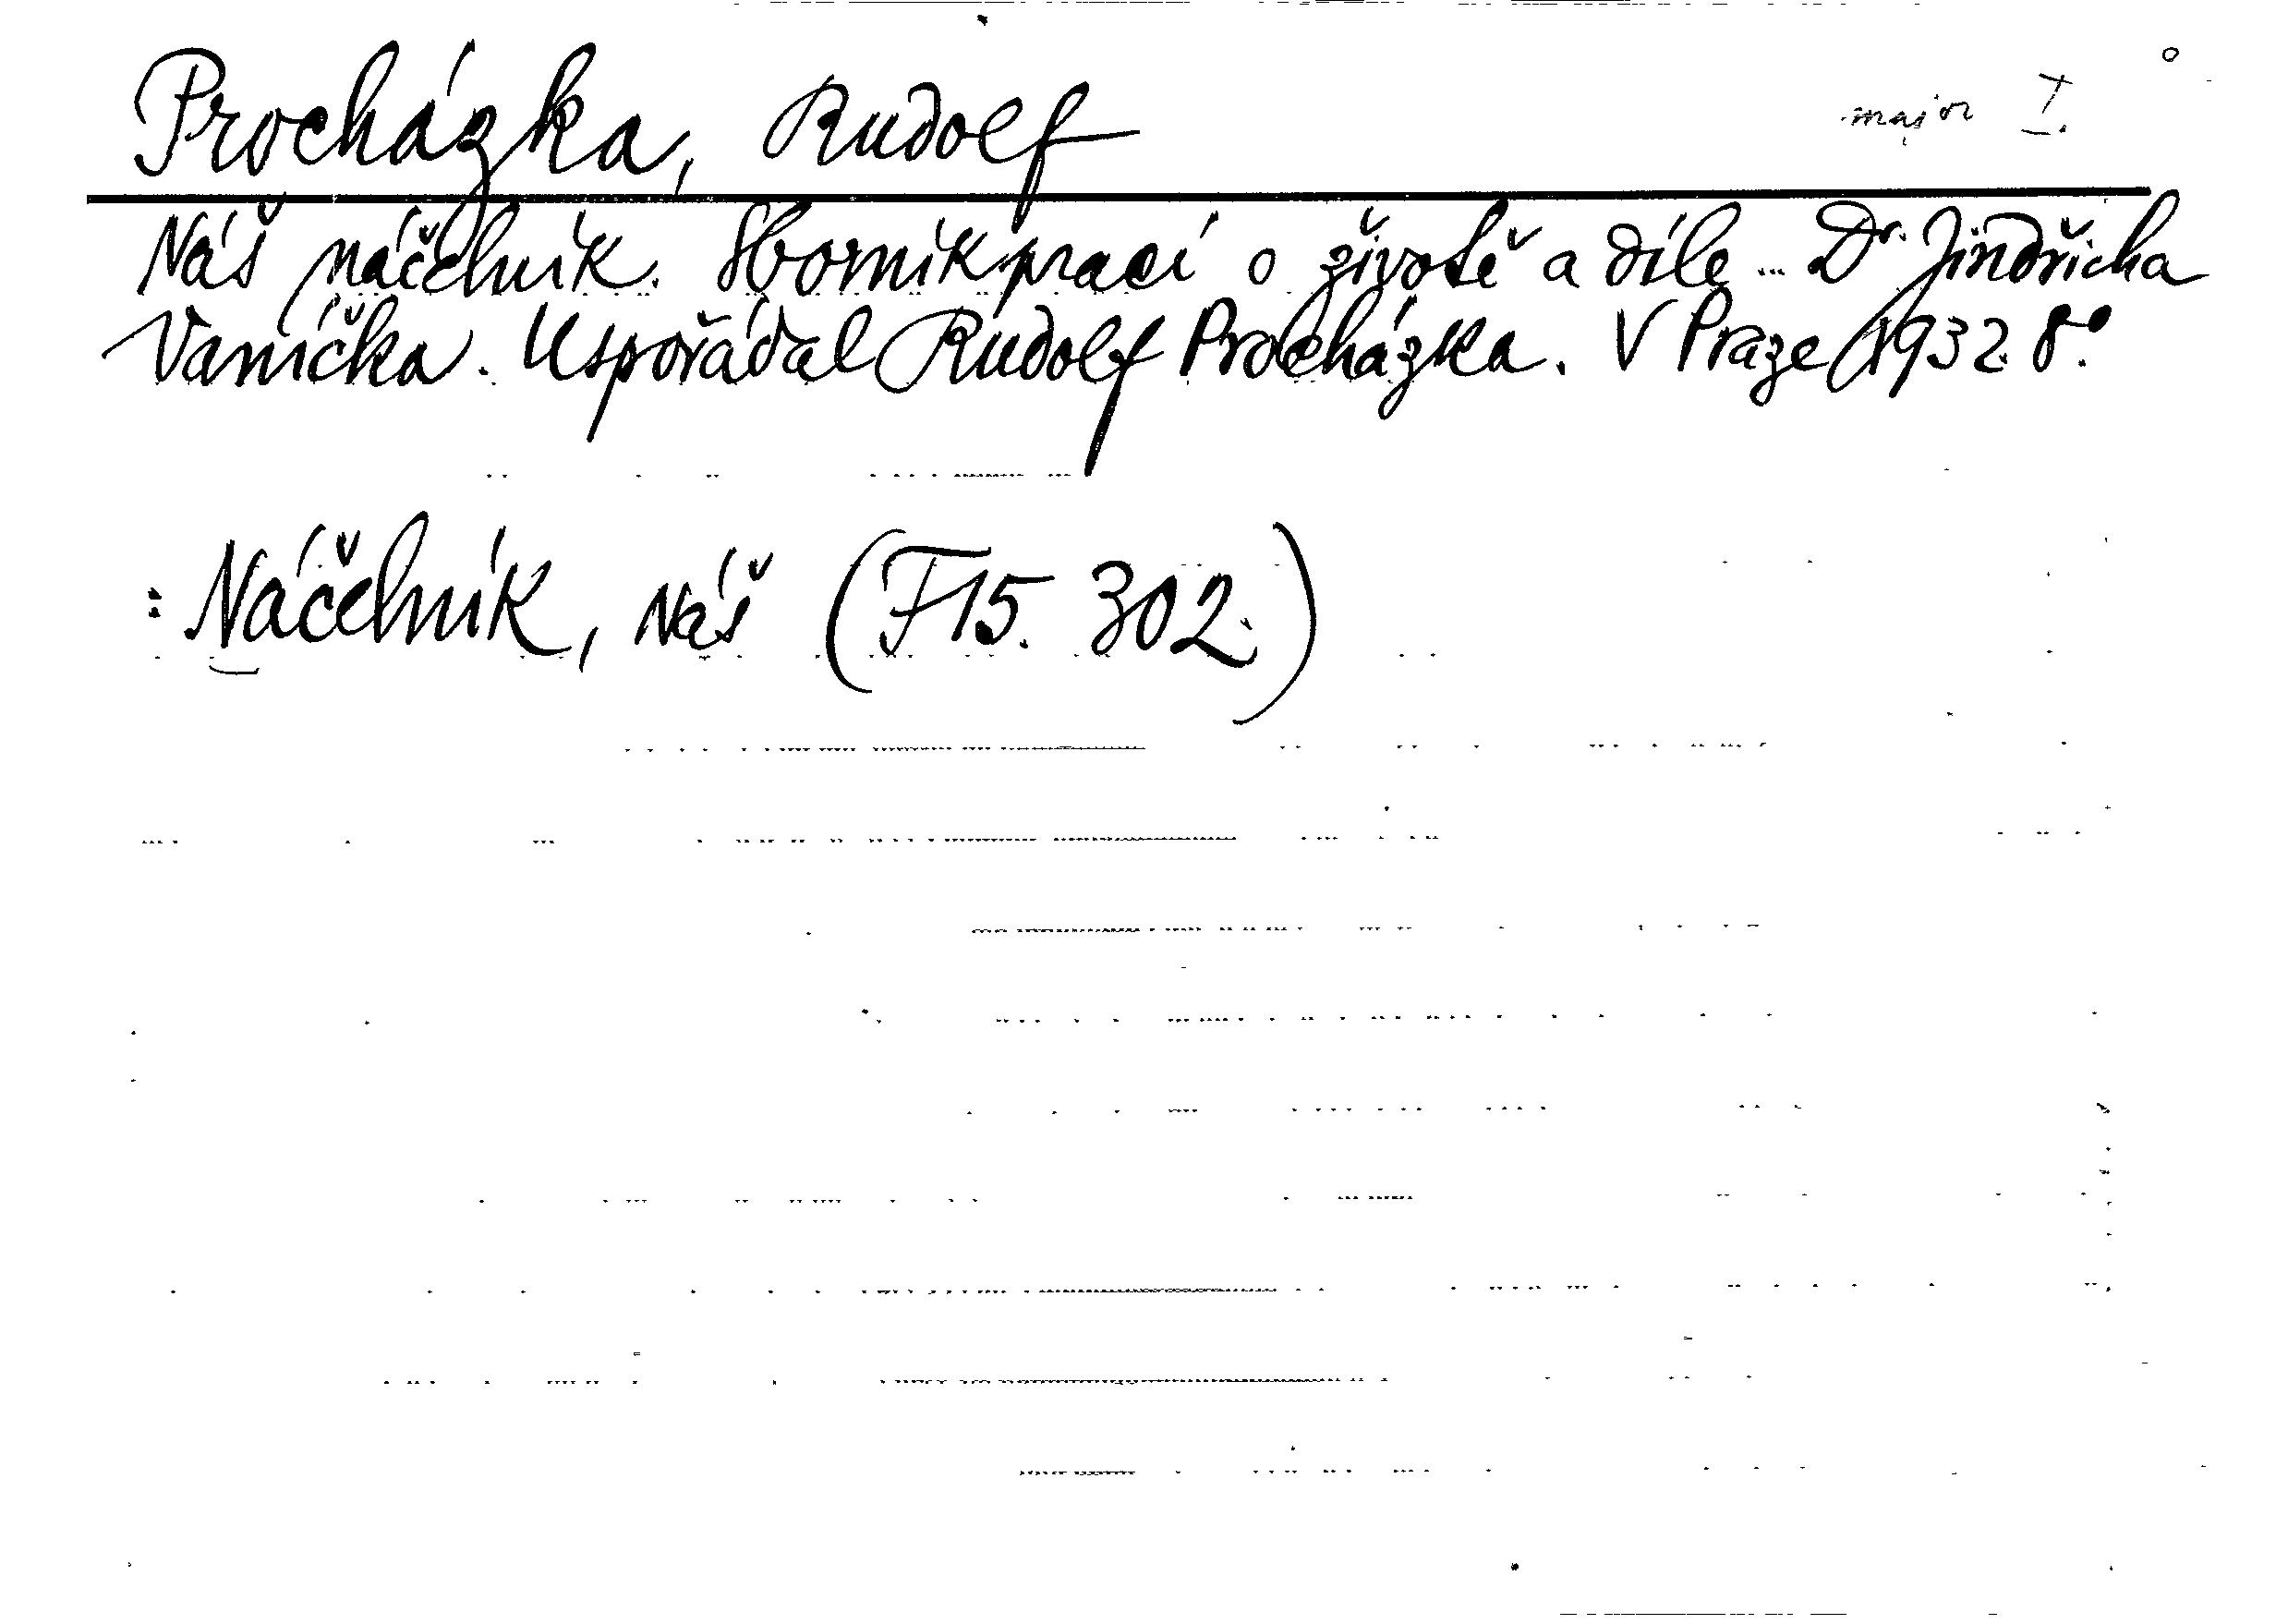 Procházka, Rudolf major I.
Náš náčelník. Sborník prací o životě a díle ... Dr. Jindřicha
Vaníčka. Uspořádal Rudolf Procházka. V Praze 1932. 8.°
: Náčelník, Náš (F15. 302.)